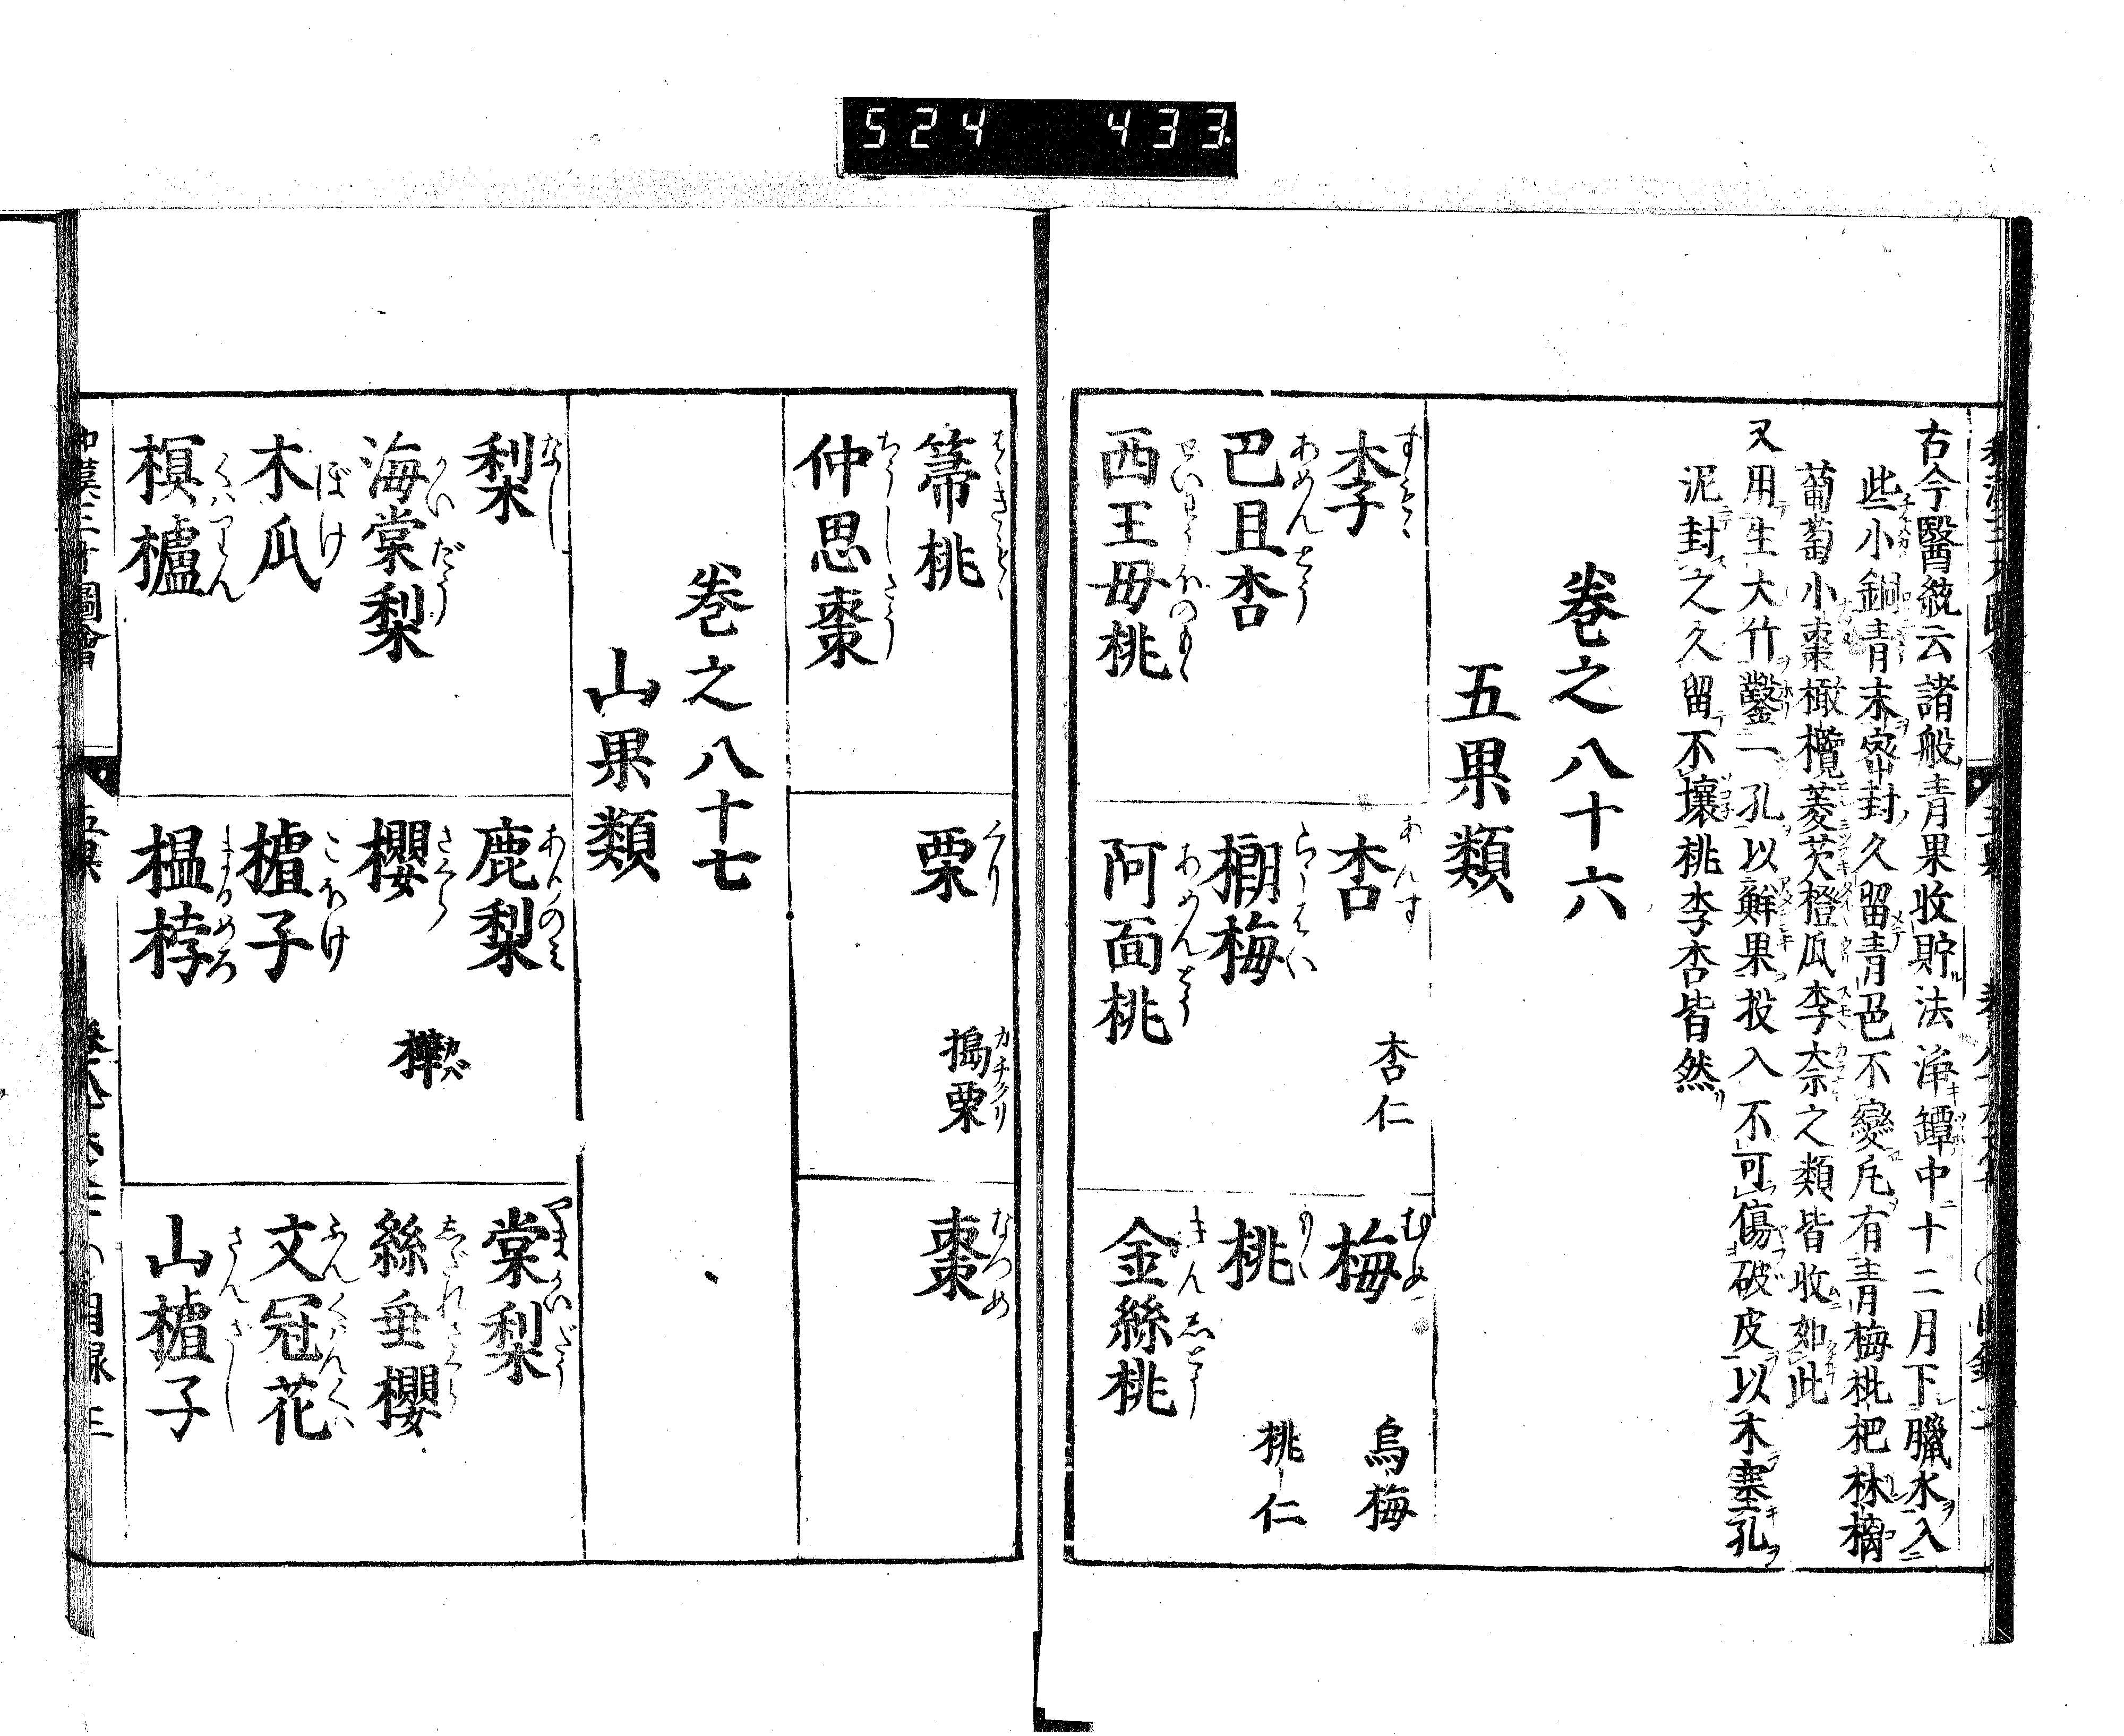 524 433
古今醫統云諸般青果收貯法淨罈中十二月下臘水入
些小銅青末密封久留青色不變凡有青梅枇杷林檎
葡萄小棗橄欖菱芡橙瓜李柰之類皆收如此
又用生大竹鑿一孔以鮮果投入不可傷破皮以木塞孔
泥封之久留不壤桃李杏皆然
卷之八十六
五果類
李 すもゝ
杏 あんず 杏仁
梅 むめ 烏梅
巴旦杏 あめんどう
棚梅 らうばい
桃 もゝ 桃仁
西王毋桃 せいわうぼのもゝ
阿面桃 あめんどう
金絲桃 きんしとう
箒桃 はゝきもゝ
栗 くり 搗栗 カチクリ
棗 なつめ
仲思棗 ちうしさう
卷之八十七
山果類
梨 なし
鹿梨 あふのみ
棠梨 やまかいだう
海棠梨 かいだう
櫻 さくら 樺 カバ
絲垂櫻 しだれざくら
木瓜 ぼけ
樝子 こぼけ
文冠花 ぶんくはんくは
榠樝 くはりん
榲桲 まるめろ
山樝子 さんざし